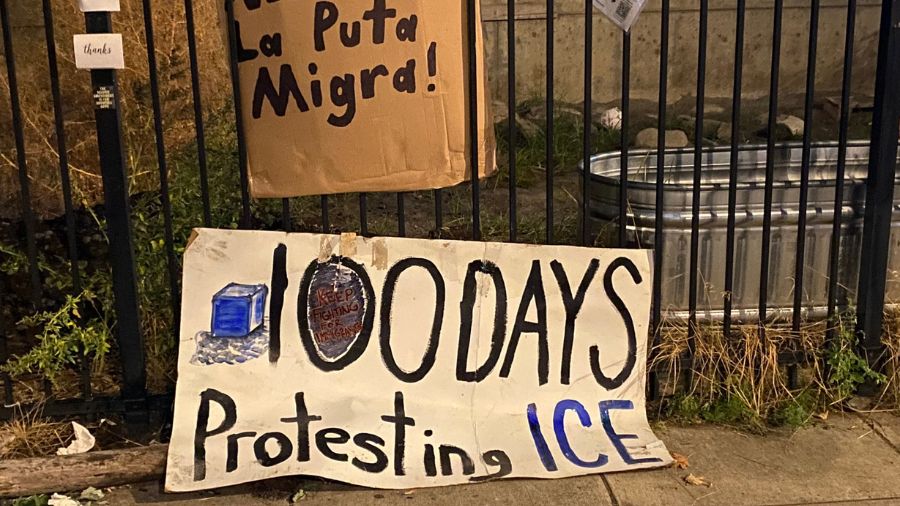 thanks
La Puta
Migra!
100 DAYS
KEEP
FIGHTING
FOR
IMMIGRANTS
Protesting ICE